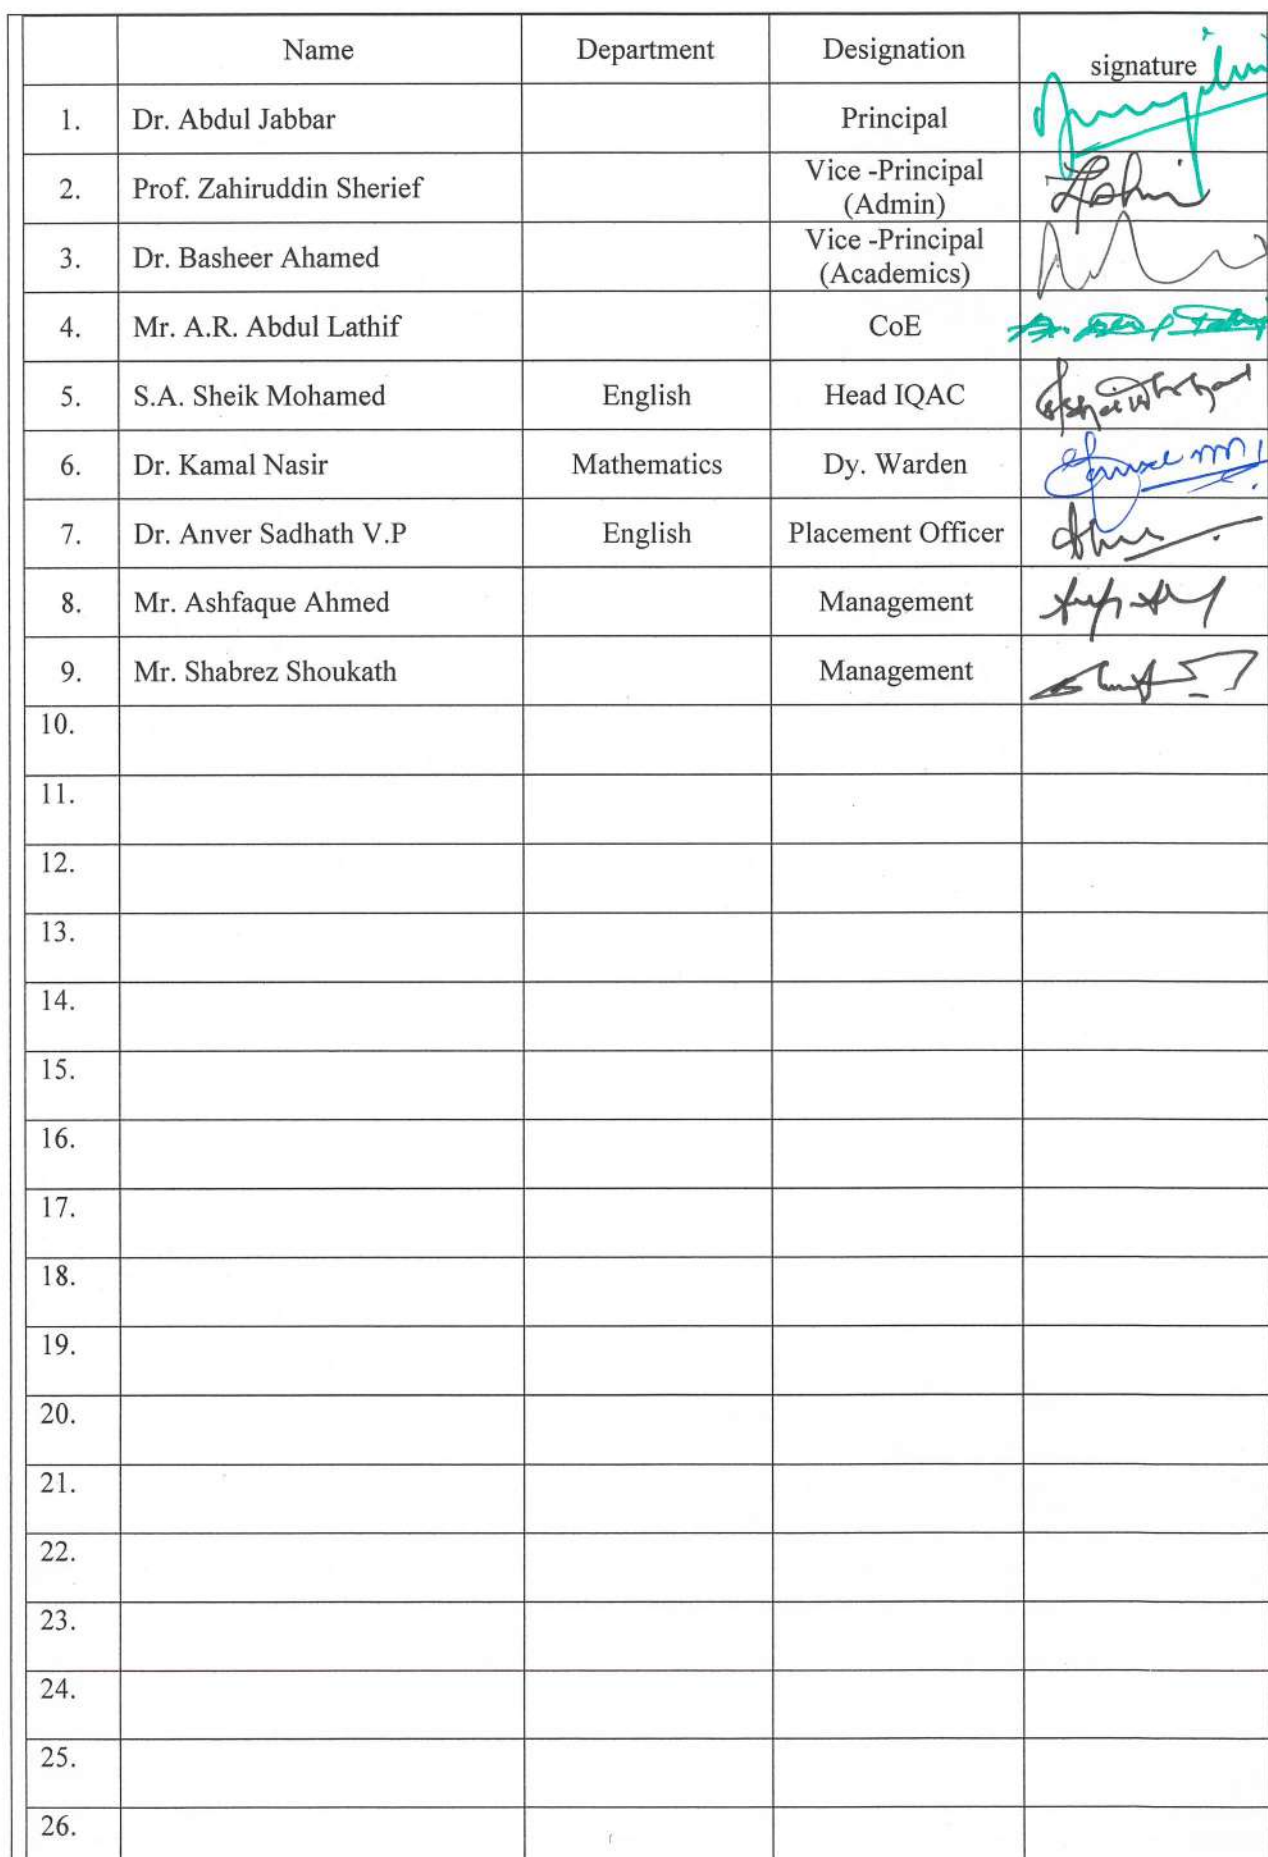 Name Department Designation signature
1. Dr. Abdul Jabbar Principal
2. Prof. Zahiruddin Sherief Vice -Principal
(Admin)
3. Dr. Basheer Ahamed Vice -Principal
(Academics)
4. Mr. A.R. Abdul Lathif CoE
5. S.A. Sheik Mohamed English Head IQAC
6. Dr. Kamal Nasir Mathematics Dy. Warden
7. Dr. Anver Sadhath V.P English Placement Officer
8. Mr. Ashfaque Ahmed Management
9. Mr. Shabrez Shoukath Management
10.
11.
12.
13.
14.
15.
16.
17.
18.
19.
20.
21.
22.
23.
24.
25.
26.